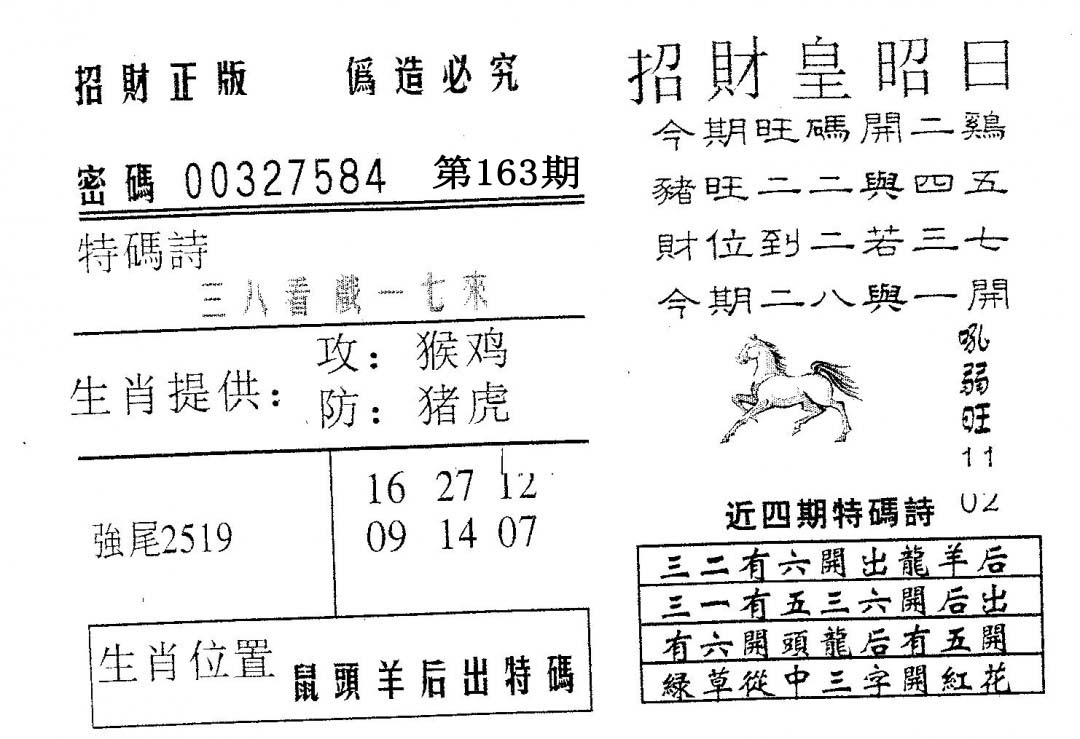 招財正版 僞造必究
密碼 00327584 第163期
特碼詩
三八看戲一七來
生肖提供：
攻：猴鸡
防：猪虎
強尾2519
16 27 12
09 14 07
生肖位置 鼠頭羊后出特碼
招財皇昭日
今期旺碼開二鷄
豬旺二二與四五
財位到二若三七
今期二八與一開
吼
弱
旺
11
02
近四期特碼詩
三二有六開出龍羊后
三一有五三六開后出
有六開頭龍后有五開
綠草從中三字開紅花